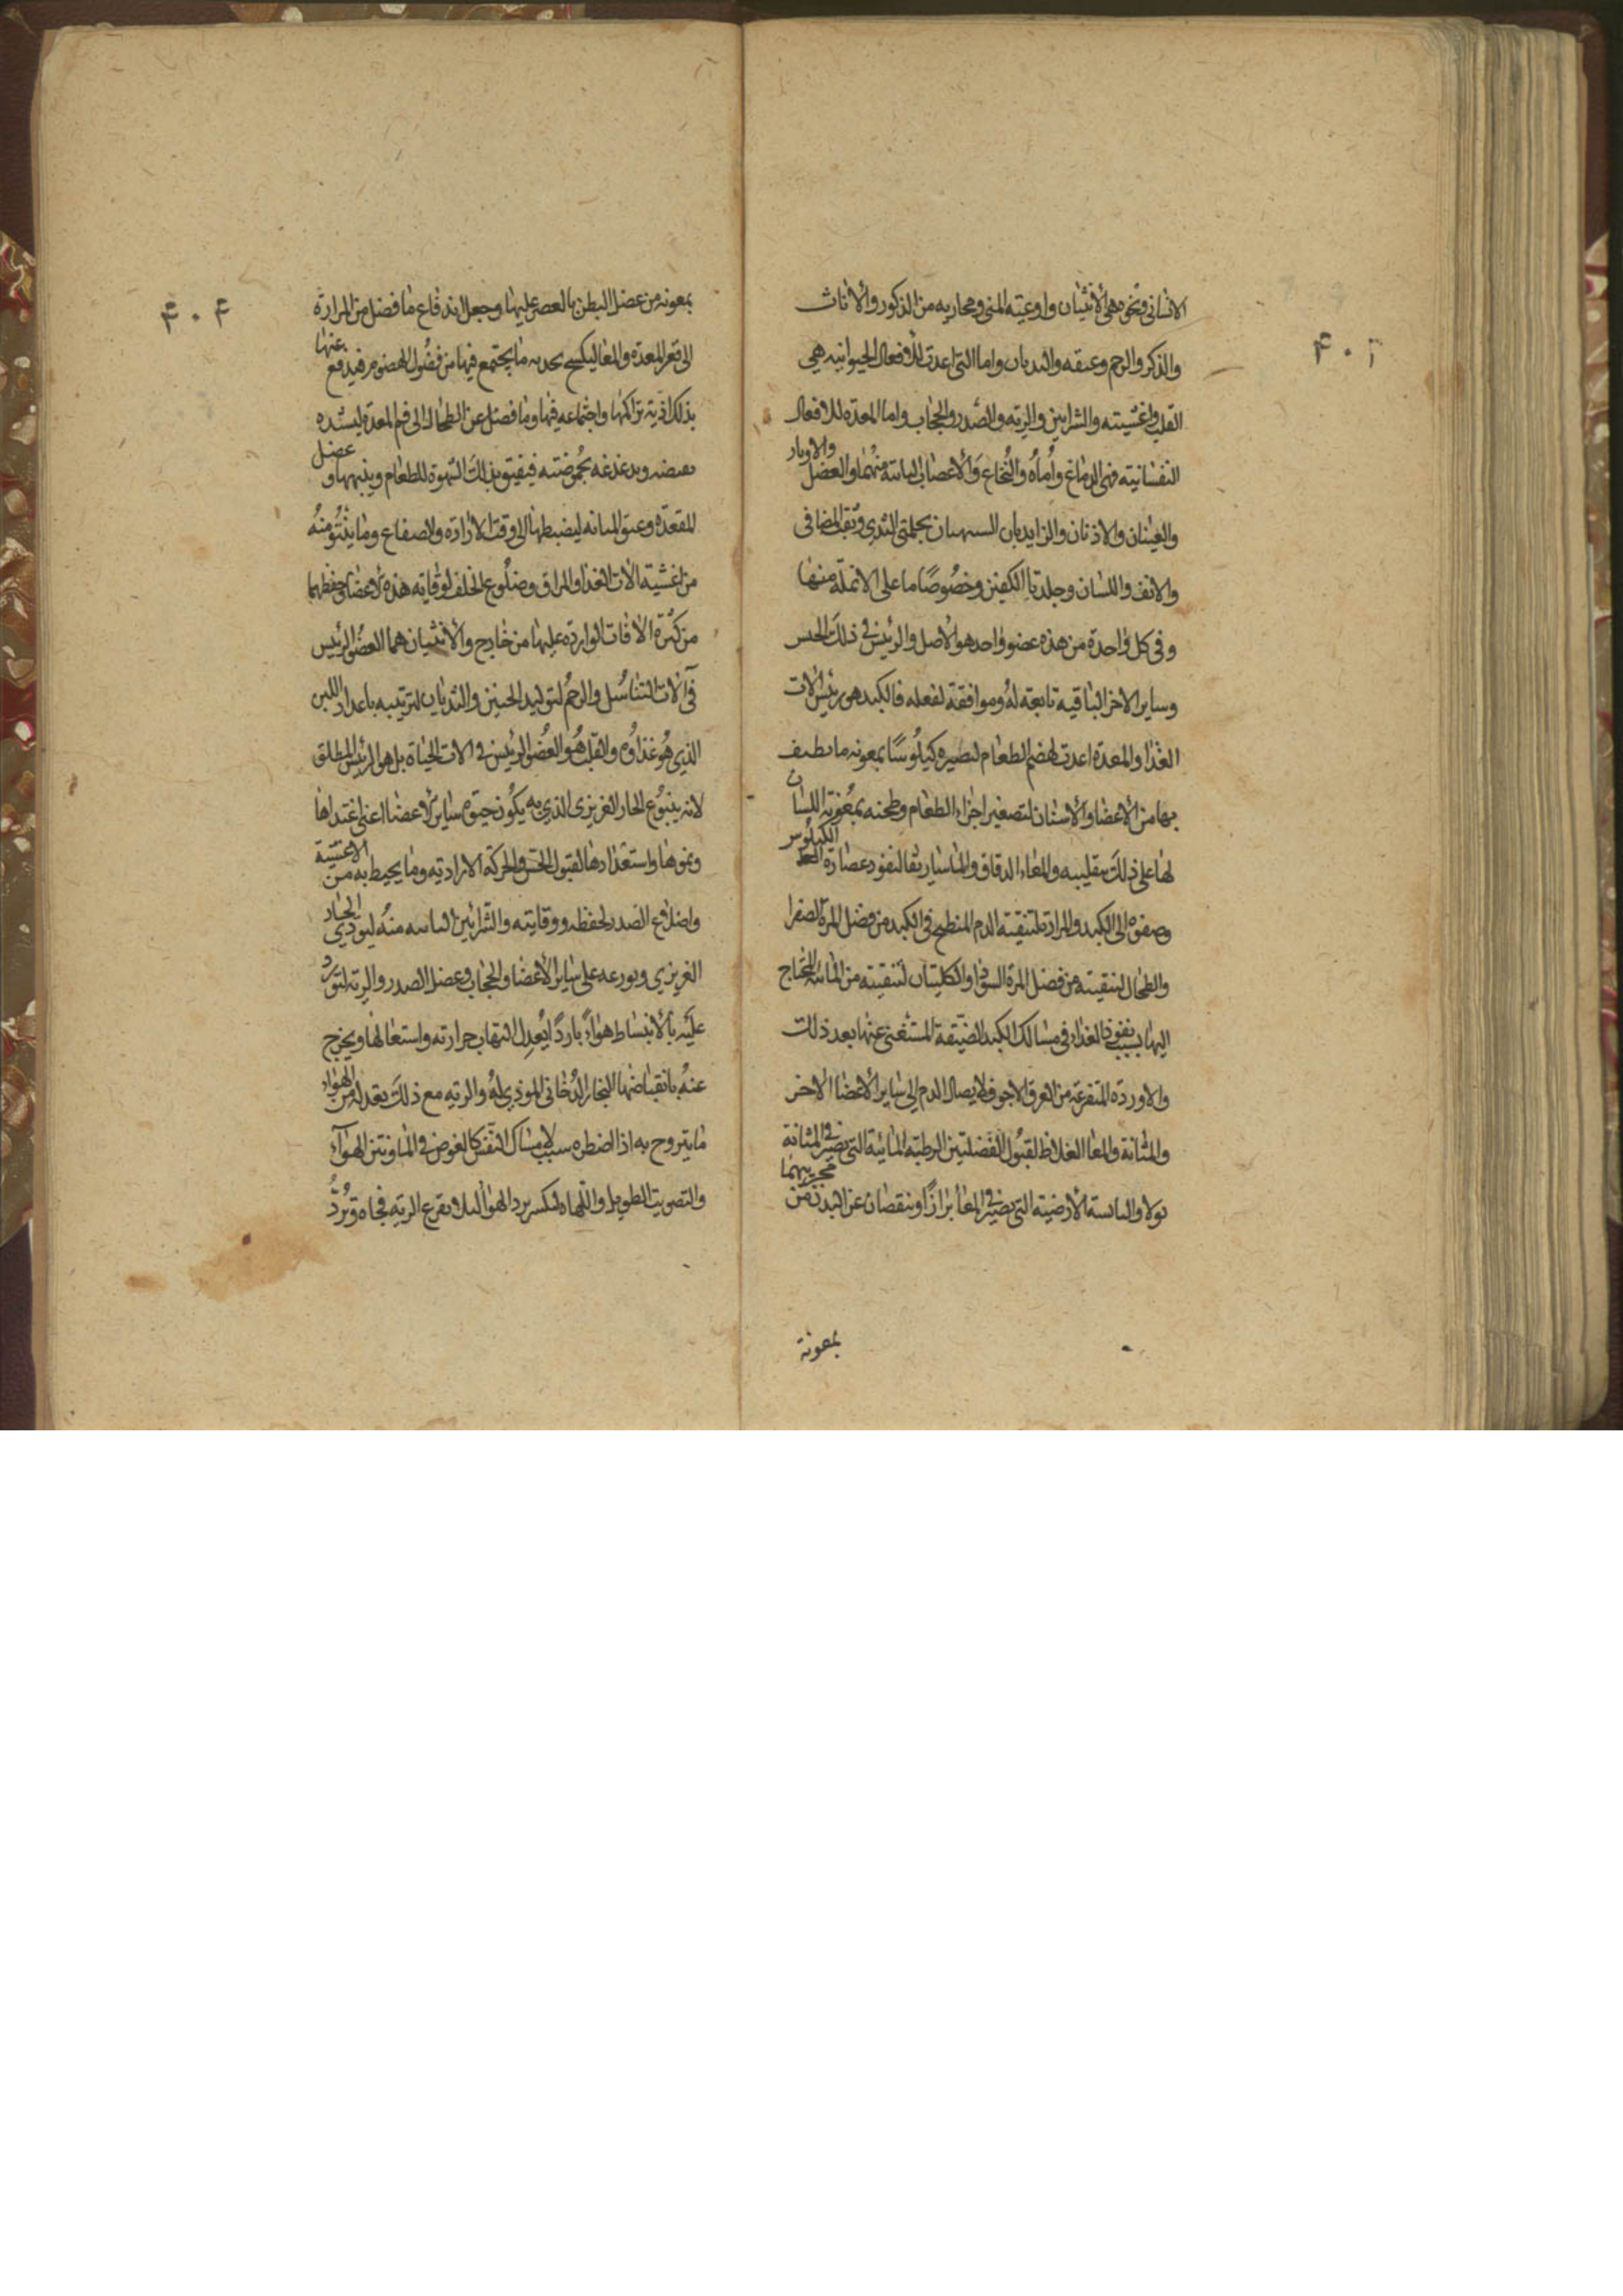 ۴۰۳
الانسانى ونحوه هى الأنثيان واوعيته المنى ومجاريه من الذكور والأناث
والذكر والرحم وعنقه والثديان واما التى اعدت للأفعال الحيوانيه هى
القلب واغشيته والشرايين والريه والصدر والحجاب واما المعدّه للافعال
النفسانيته فهى الدماغ وأماه والنخاع والأعصاب النابتة منهما والعضل والاوتار
والعينان والاذنان والزايدتان الشبيهتان بحلمتى الثدي وثقب المصافى
والانف واللسان وجلدتا الكفين وخصوصًا ما على الانملة منها
وفى كل واحدة من هذه عضو واحد هو الأصل والرئيس فى ذلك الجنس
وساير الاخر الباقية تابعة له وموافقة لفعله فالكبد هى رئيس الات
الغذا والمعدة اعدت لهضم الطعام لتصيره كيلوسًا بمعونه ما يطيف
بها من الأعضا والأسنان لتصغير اجزاء الطعام وطحنه بمعونة اللسان
لها على ذلك بتقليبه والمعاء الدقاق والماساريقا لنفود عصارة الكيلوس
وصفوه الى الكبد والمرارة لتنقيته الدم المنطبخ فى الكبد من فضل المرة الصفرا
والطحال لتنقيته من فضل المرة السودا والكليتان لتنقيته من المائية المحتاج
اليها بسبب نفوذ الغذاء فى مسالك الكبد الضيقة المستغنى عنها بعد ذلك
والاوردة المتفرعة من العرق الاجوف لايصال الدم الى ساير الأعضا الاخر
والمثانة والمعا الغلاظ لقبول الفضلتين الرطبة المائية التى تصير فى المثانة
بولا واليابسة الأرضية التى تصير فى المعا برازًا وينقصان عن البدن من مجريهما
بمعونة
۴۰۴
بمعونه من عضل البطن بالعصر عليها وجعل اندفاع ما فضل من المرارة
الى قعر المعدة والمعا ليكسح بحدته ما يجتمع فيها من فضول الهضوم فيدفع عنها
بذلك اذية تراكمها واجتماعه فيها وما فضل عن الطحال الى فم المعدة ليشده
بعفصه ويدغدغه بحموضته فيفتق بذلك الشهوة للطعام وينبهها وعضل
المقعدة وعنق المثانه ليضبطها الى وقت الارادة والصفاع وما ينتؤ منه
من اغشية الات الغذا والمراق وضلوع الخلف لوقايه هذه الأعضا وحفظهما
من كثرة الافات الواردة عليها من خارج والأنثيان هما العضو الرئيس
فى الات التناسل والرحم لتوليد الجنين والثديان لتربيه باعداد اللبن
الذي هو غذاؤه والقلب هو العضو الرئيس فى الات الحياة بل هو الرئيس المطلق
لانه ينبوع الحار الغريزى الذي به يكون حيوة ساير الأعضا اعنى اغتداها
ونموها واستعدادها لقبول الحس والحركة الارادية وما يحيط به من الاغشية
واضلاع الصدر لحفظه ووقايته والشرايين النابته منه ليودي الحار
الغريزي ويوزعه على ساير الأعضا والحجاب وعضل الصدر والريه لتورد
عليه بالأنبساط هواءً باردًا يُعدل التهاب حرارته واستعالها ويخرج
عنه بانقباضها البخار الدُخانى الموذي له والريه مع ذلك يعد له من الهواء
ما يتروح به اذا اضطره سبب لامساك النفس كالغوص فى الما ونتن الهواء
والتصويت الطويل واللهاه لتكسر برد الهوا لئلا يقرع الريه فجاه وترد